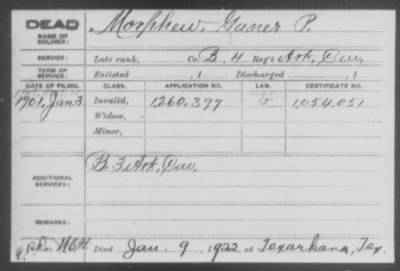 DEAD
NAME OF SOLDIER:
Morphew, Ganer P.
SERVICE:
Late rank, Co. B, 4 Reg't Ark. Cav,
TERM OF SERVICE:
Enlisted , 1 Discharged , 1
DATE OF FILING. CLASS. APPLICATION NO. LAW. CERTIFICATE NO.
1901, Jan. 3. Invalid, 1,260,397 G 1,054,051
Widow,
Minor,
ADDITIONAL SERVICES:
B 3 Ark. Cav,
REMARKS:
Died Jan. 9 1922, at Texarkana, Tex.